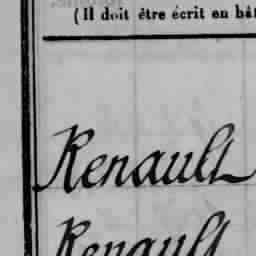 (Il doit être écrit en bât
Renault
Renault